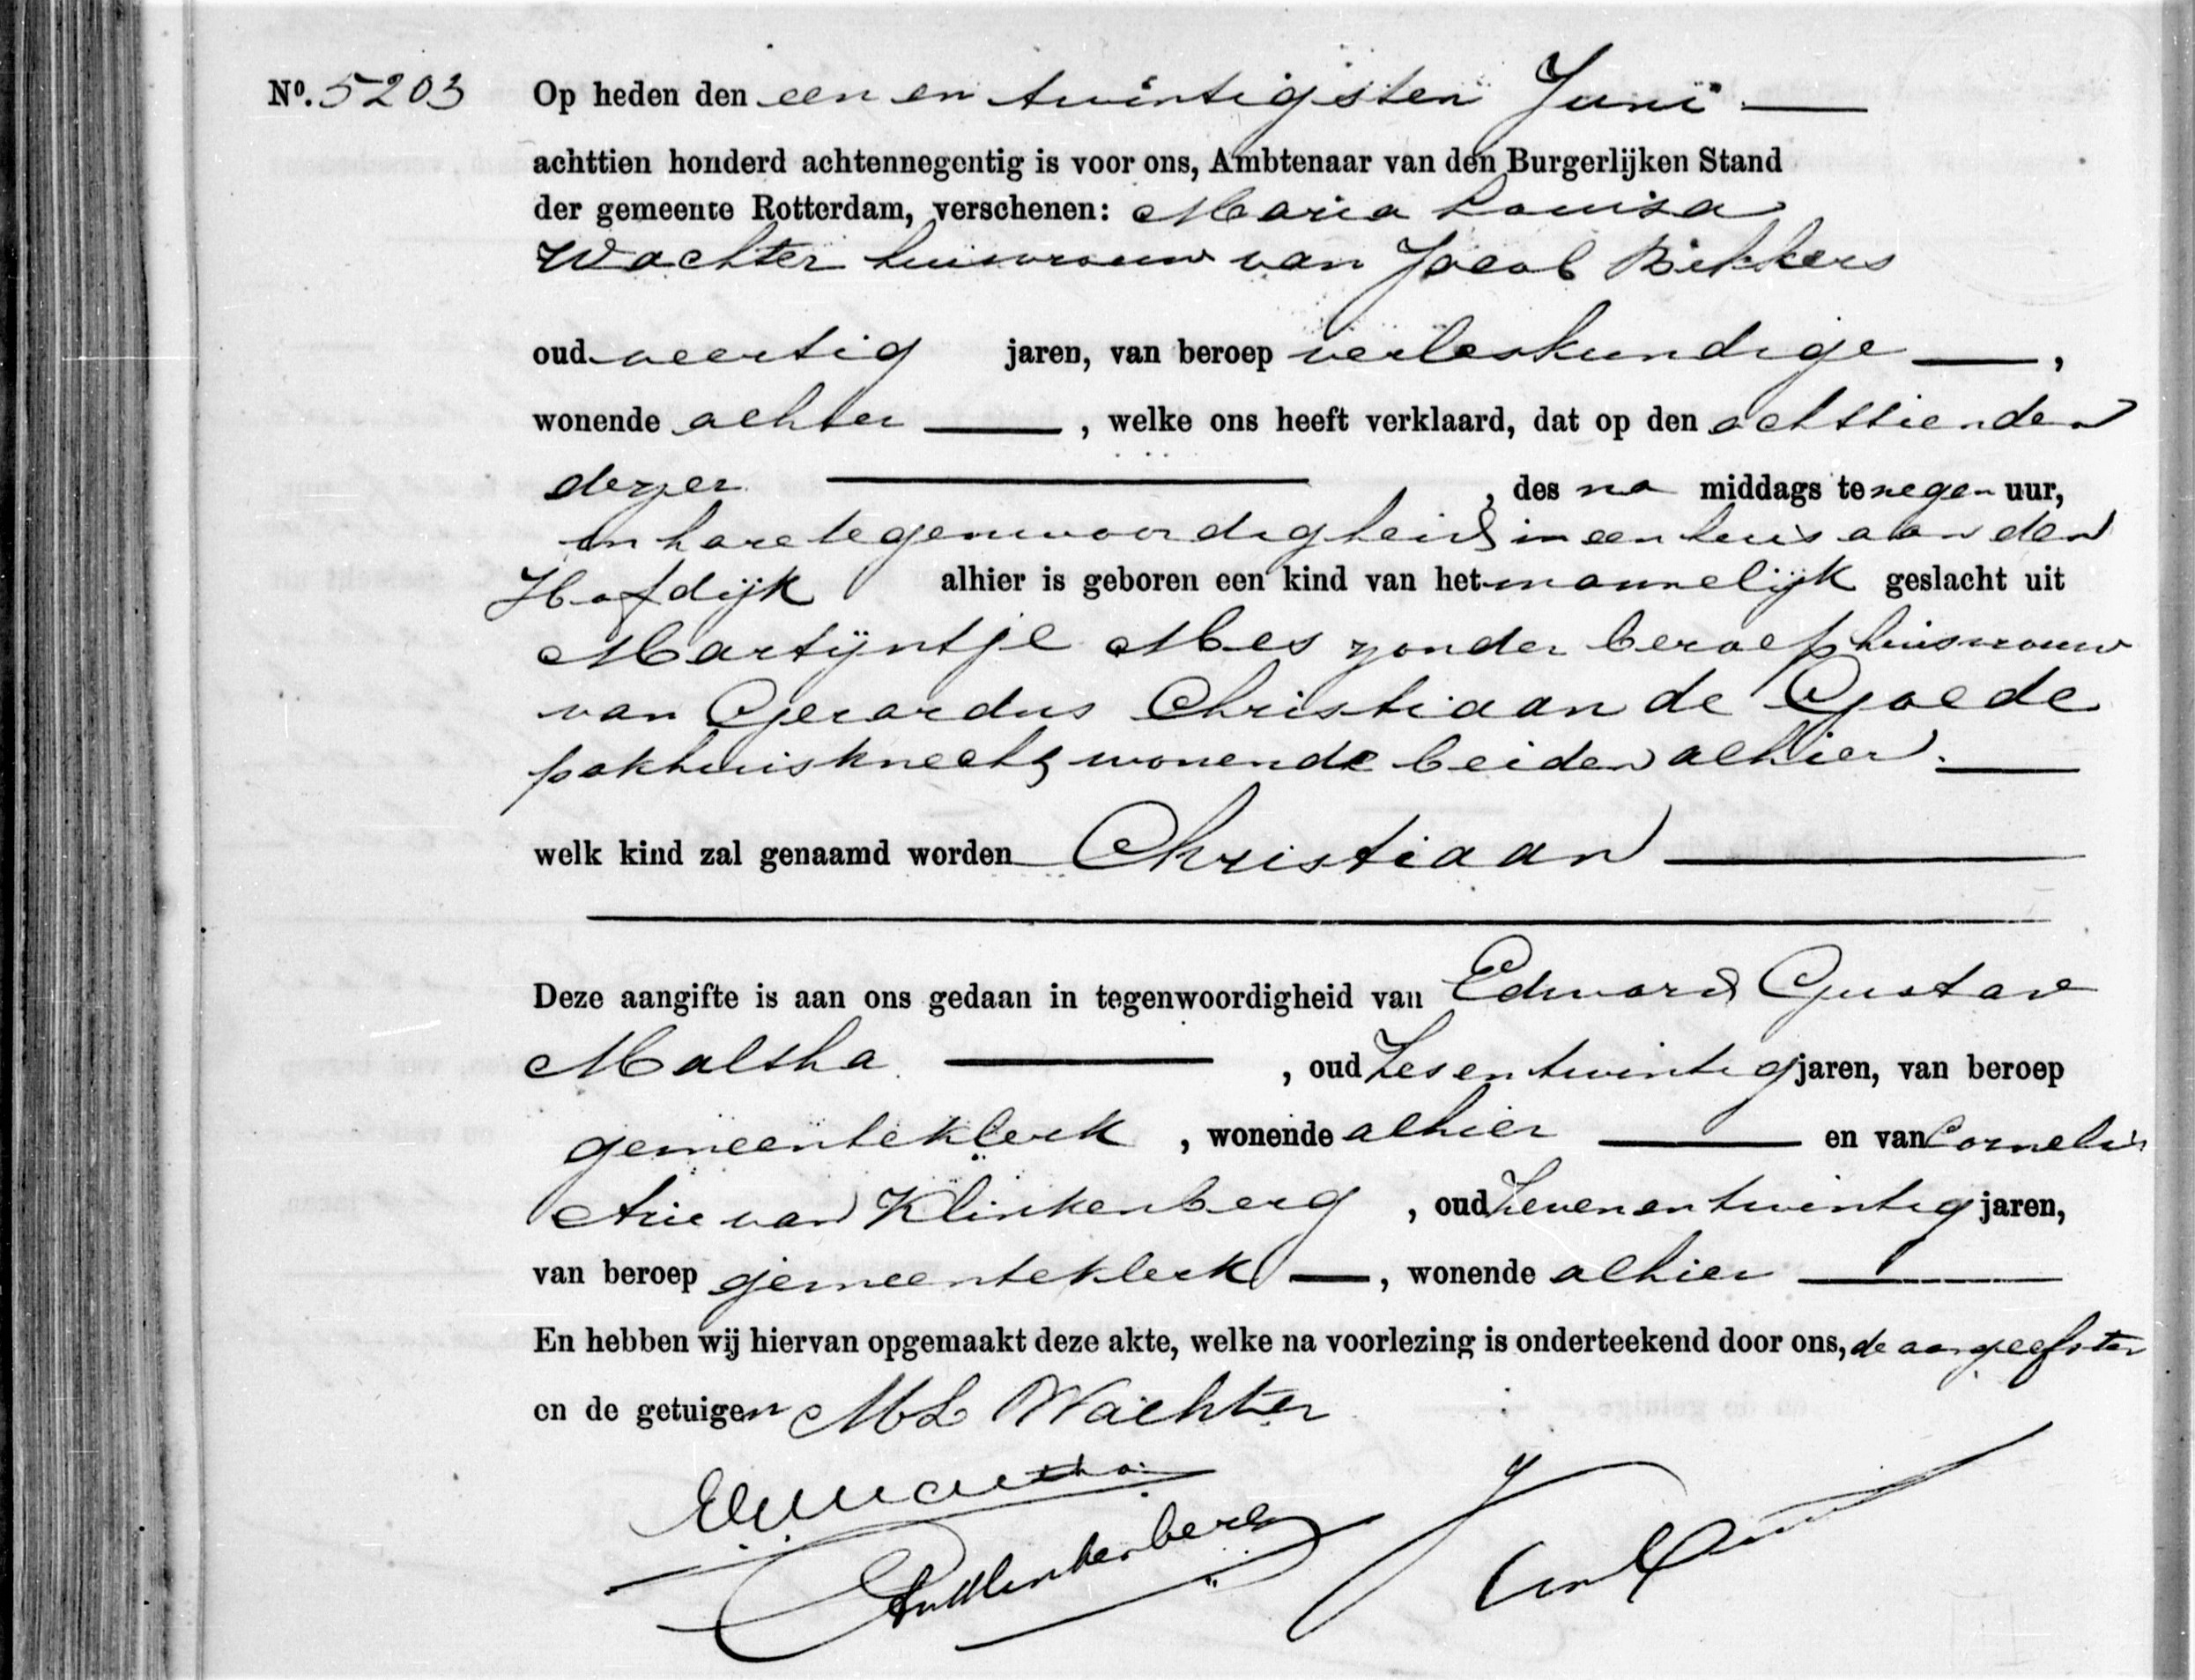 Nº. 5203 Op heden den een en twintigsten Juni
achttien honderd achtennegentig is voor ons, Ambtenaar van den Burgerlijken Stand
der gemeente Rotterdam, verschenen: Maria Louisa
Wachter huisvrouw van Jacob Bikkers
oud veertig jaren, van beroep verloskundige,
wonende alhier, welke ons heeft verklaard, dat op den achttienden
dezer, des na middags te negen uur,
in hare tegenwoordigheid in een huis aan den
Hofdijk alhier is geboren een kind van het mannelijk geslacht uit
Martijntje Mes zonder beroep huisvrouw
van Gerardus Christiaan de Goede
pakhuisknecht, wonende beiden alhier.
welk kind zal genaamd worden Christiaan
Deze aangifte is aan ons gedaan in tegenwoordigheid van Edward Gustav
Maltha, oud zes en twintig jaren, van beroep
gemeenteklerk, wonende alhier en van Cornelis
Arie van Klinkenberg, oud zeven en twintig jaren,
van beroep gemeenteklerk, wonende alhier
En hebben wij hiervan opgemaakt deze akte, welke na voorlezing is onderteekend door ons, de aangeefster
en de getuigen ML Wachter
EGMaltha
CAvKlinkenberg